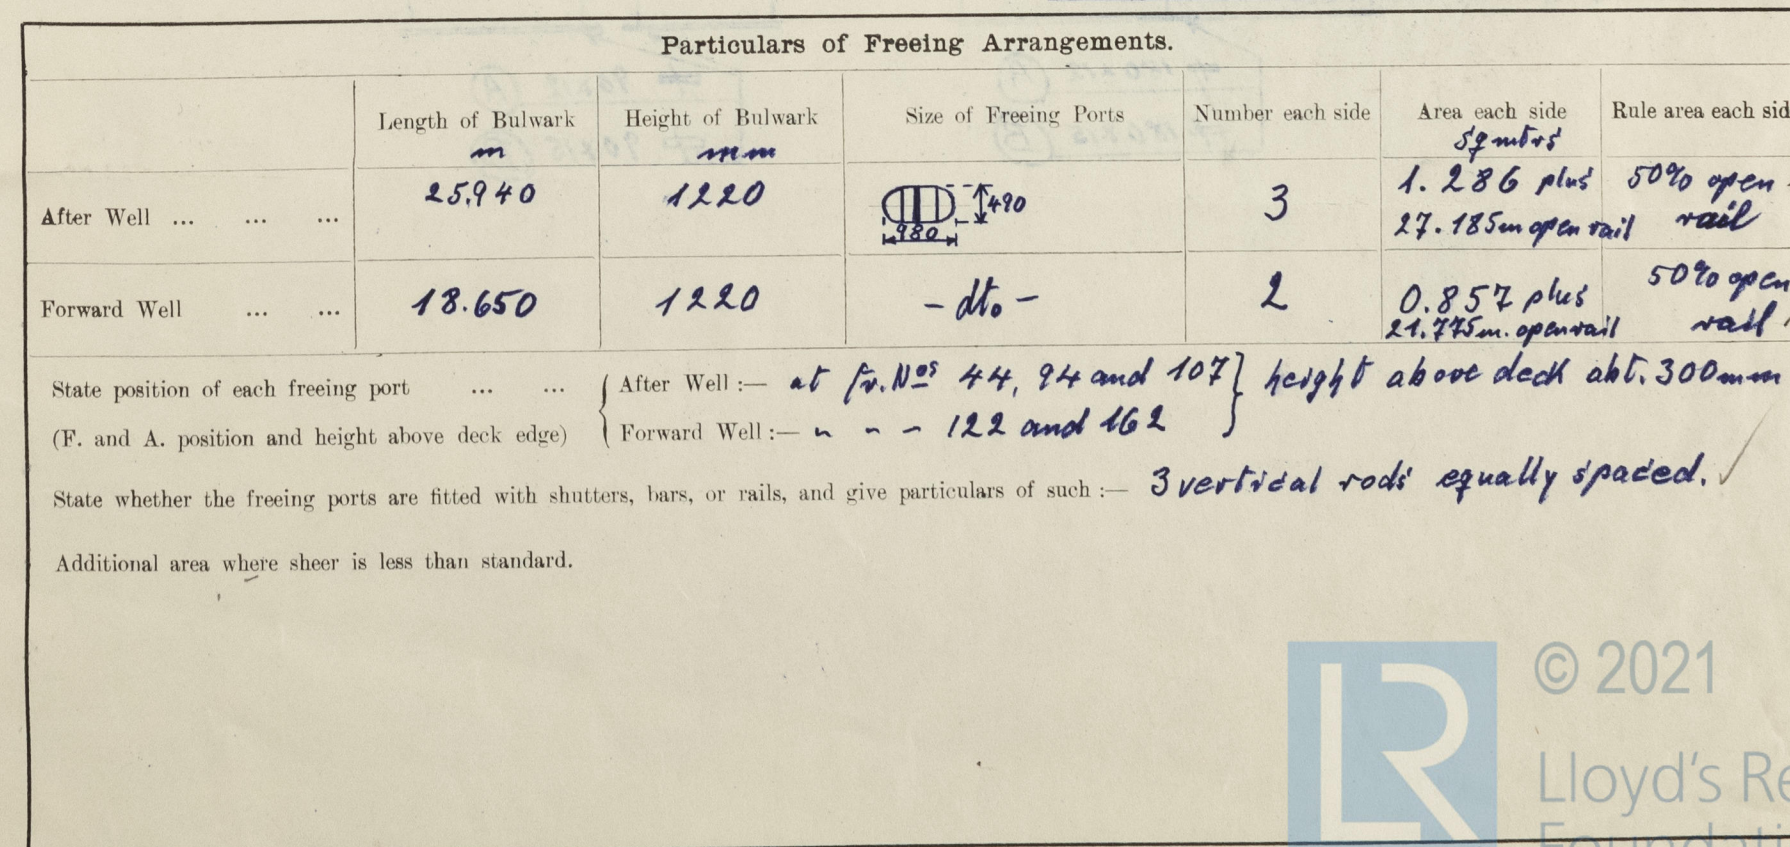 Particulars of Freeing Arrangements.
Length of Bulwark Height of Bulwark Size of Freeing Ports Number each side Area each side Rule area each sid
m mm Sq mtrs
After Well ... ... ... 25.940 1220 980 490 3 1.286 plus 50% open
27.185m open rail rail
Forward Well ... ... 18.650 1220 - dto - 2 0.857 plus 50% open
21.775m. open rail rail
State position of each freeing port ... ... After Well :— at fr. Nos 44, 94 and 107 } height above deck abt. 300mm
(F. and A. position and height above deck edge) Forward Well :— " " " 122 and 162
State whether the freeing ports are fitted with shutters, bars, or rails, and give particulars of such :— 3 vertical rods equally spaced. ✓
Additional area where sheer is less than standard.
LR
© 2021
Lloyd's Re
Foundati